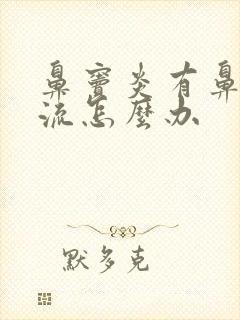 鼻窦炎有鼻
流怎麼办
默多克